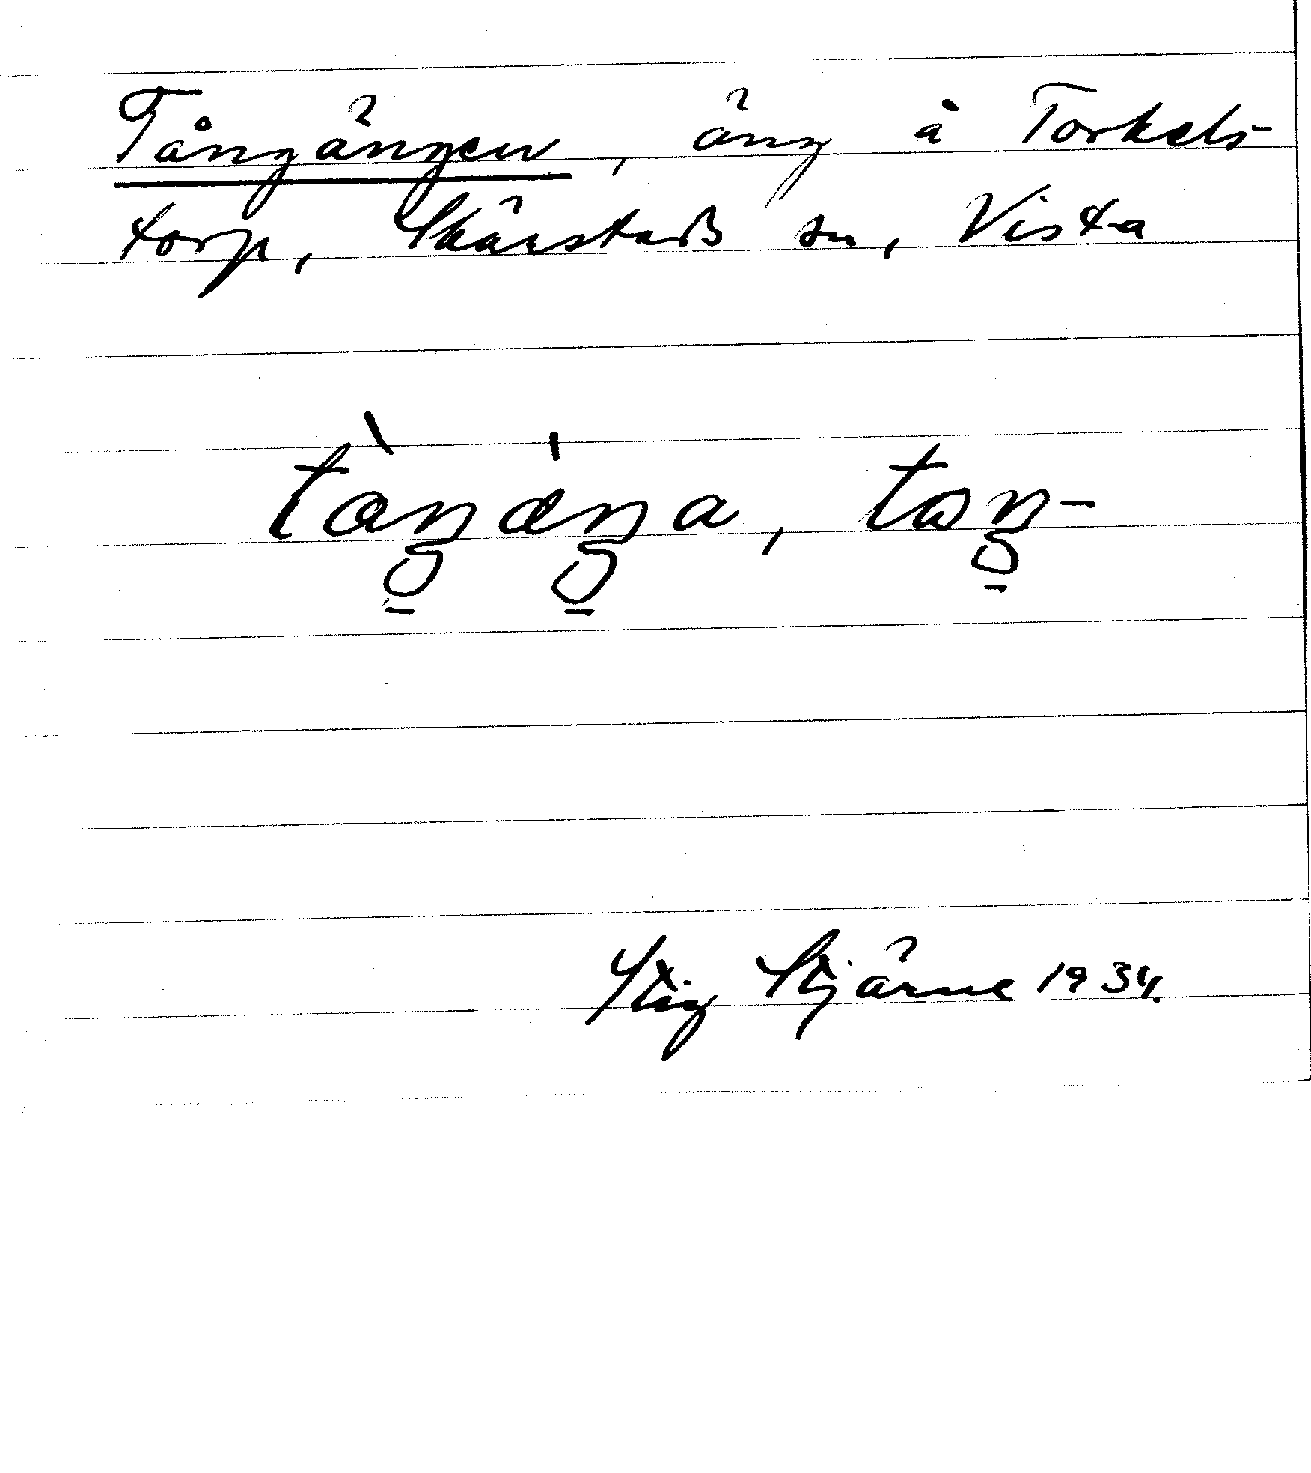 Tångängen, äng å Torkels-
torp, Skärstads sn, Vista
tàŋáŋa, taŋ-
Stig Stjärne 1934.